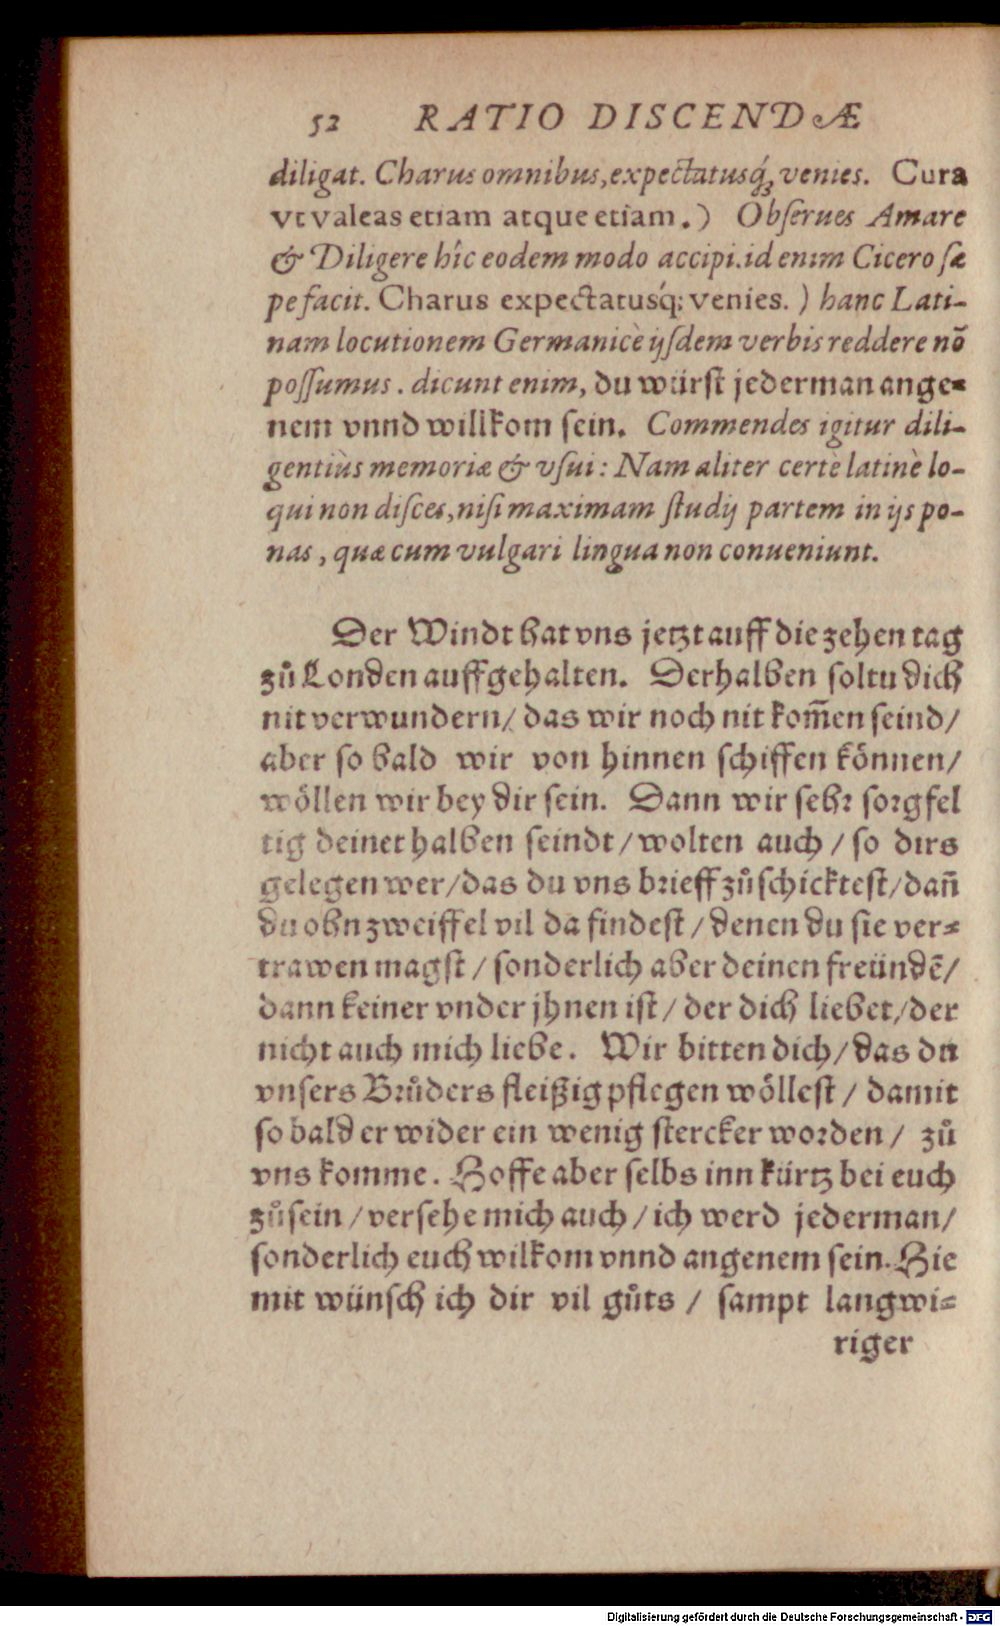 52 RATIO DISCENDÆ
diligat. Charus omnibus, expectatusq́ꝫ venies. Cura
vt valeas etiam atque etiam.) Obserues Amare
& Diligere hîc eodem modo accipi. id enim Cicero sæ
pe facit. Charus expectatusq́; venies.) hanc Lati-
nam locutionem Germanicè ijsdem verbis reddere nõ
possumus. dicunt enim, du würst jederman ange-
nem vnnd willkom sein. Commendes igitur dili-
gentiùs memoriæ & vsui: Nam aliter certè latinè lo-
qui non disces, nisi maximam studij partem in ijs po-
nas, quæ cum vulgari lingua non conueniunt.
Der Windt hat vns jetzt auff die zehen tag
zů Londen auffgehalten. Derhalben soltu dich
nit verwundern/ das wir noch nit kom̃en seind/
aber so bald wir von hinnen schiffen können/
wöllen wir bey dir sein. Dann wir sehr sorgfel
tig deinet halben seindt/ wolten auch/ so dirs
gelegen wer/ das du vns brieff zůschicktest/ dañ
du ohn zweiffel vil da findest/ denen du sie ver-
trawen magst/ sonderlich aber deinen freündẽ/
dann keiner vnder jhnen ist/ der dich liebet/ der
nicht auch mich liebe. Wir bitten dich/ das du
vnsers Brůders fleißig pflegen wöllest/ damit
so bald er wider ein wenig stercker worden/ zů
vns komme. Hoffe aber selbs inn kürtz bei euch
zůsein/ versehe mich auch/ ich werd jederman/
sonderlich euch wilkom vnnd angenem sein. Hie
mit wünsch ich dir vil gůts/ sampt langwi-
riger
Digitalisierung gefördert durch die Deutsche Forschungsgemeinschaft - DFG